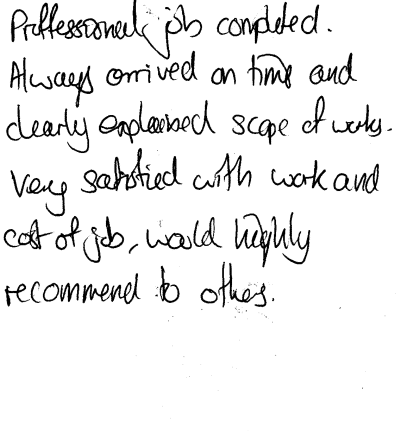 Proffessional job completed.
Always arrived on time and
clearly explained scope of works.
Very satisfied with work and
cost of job, would highly
recommend to others.